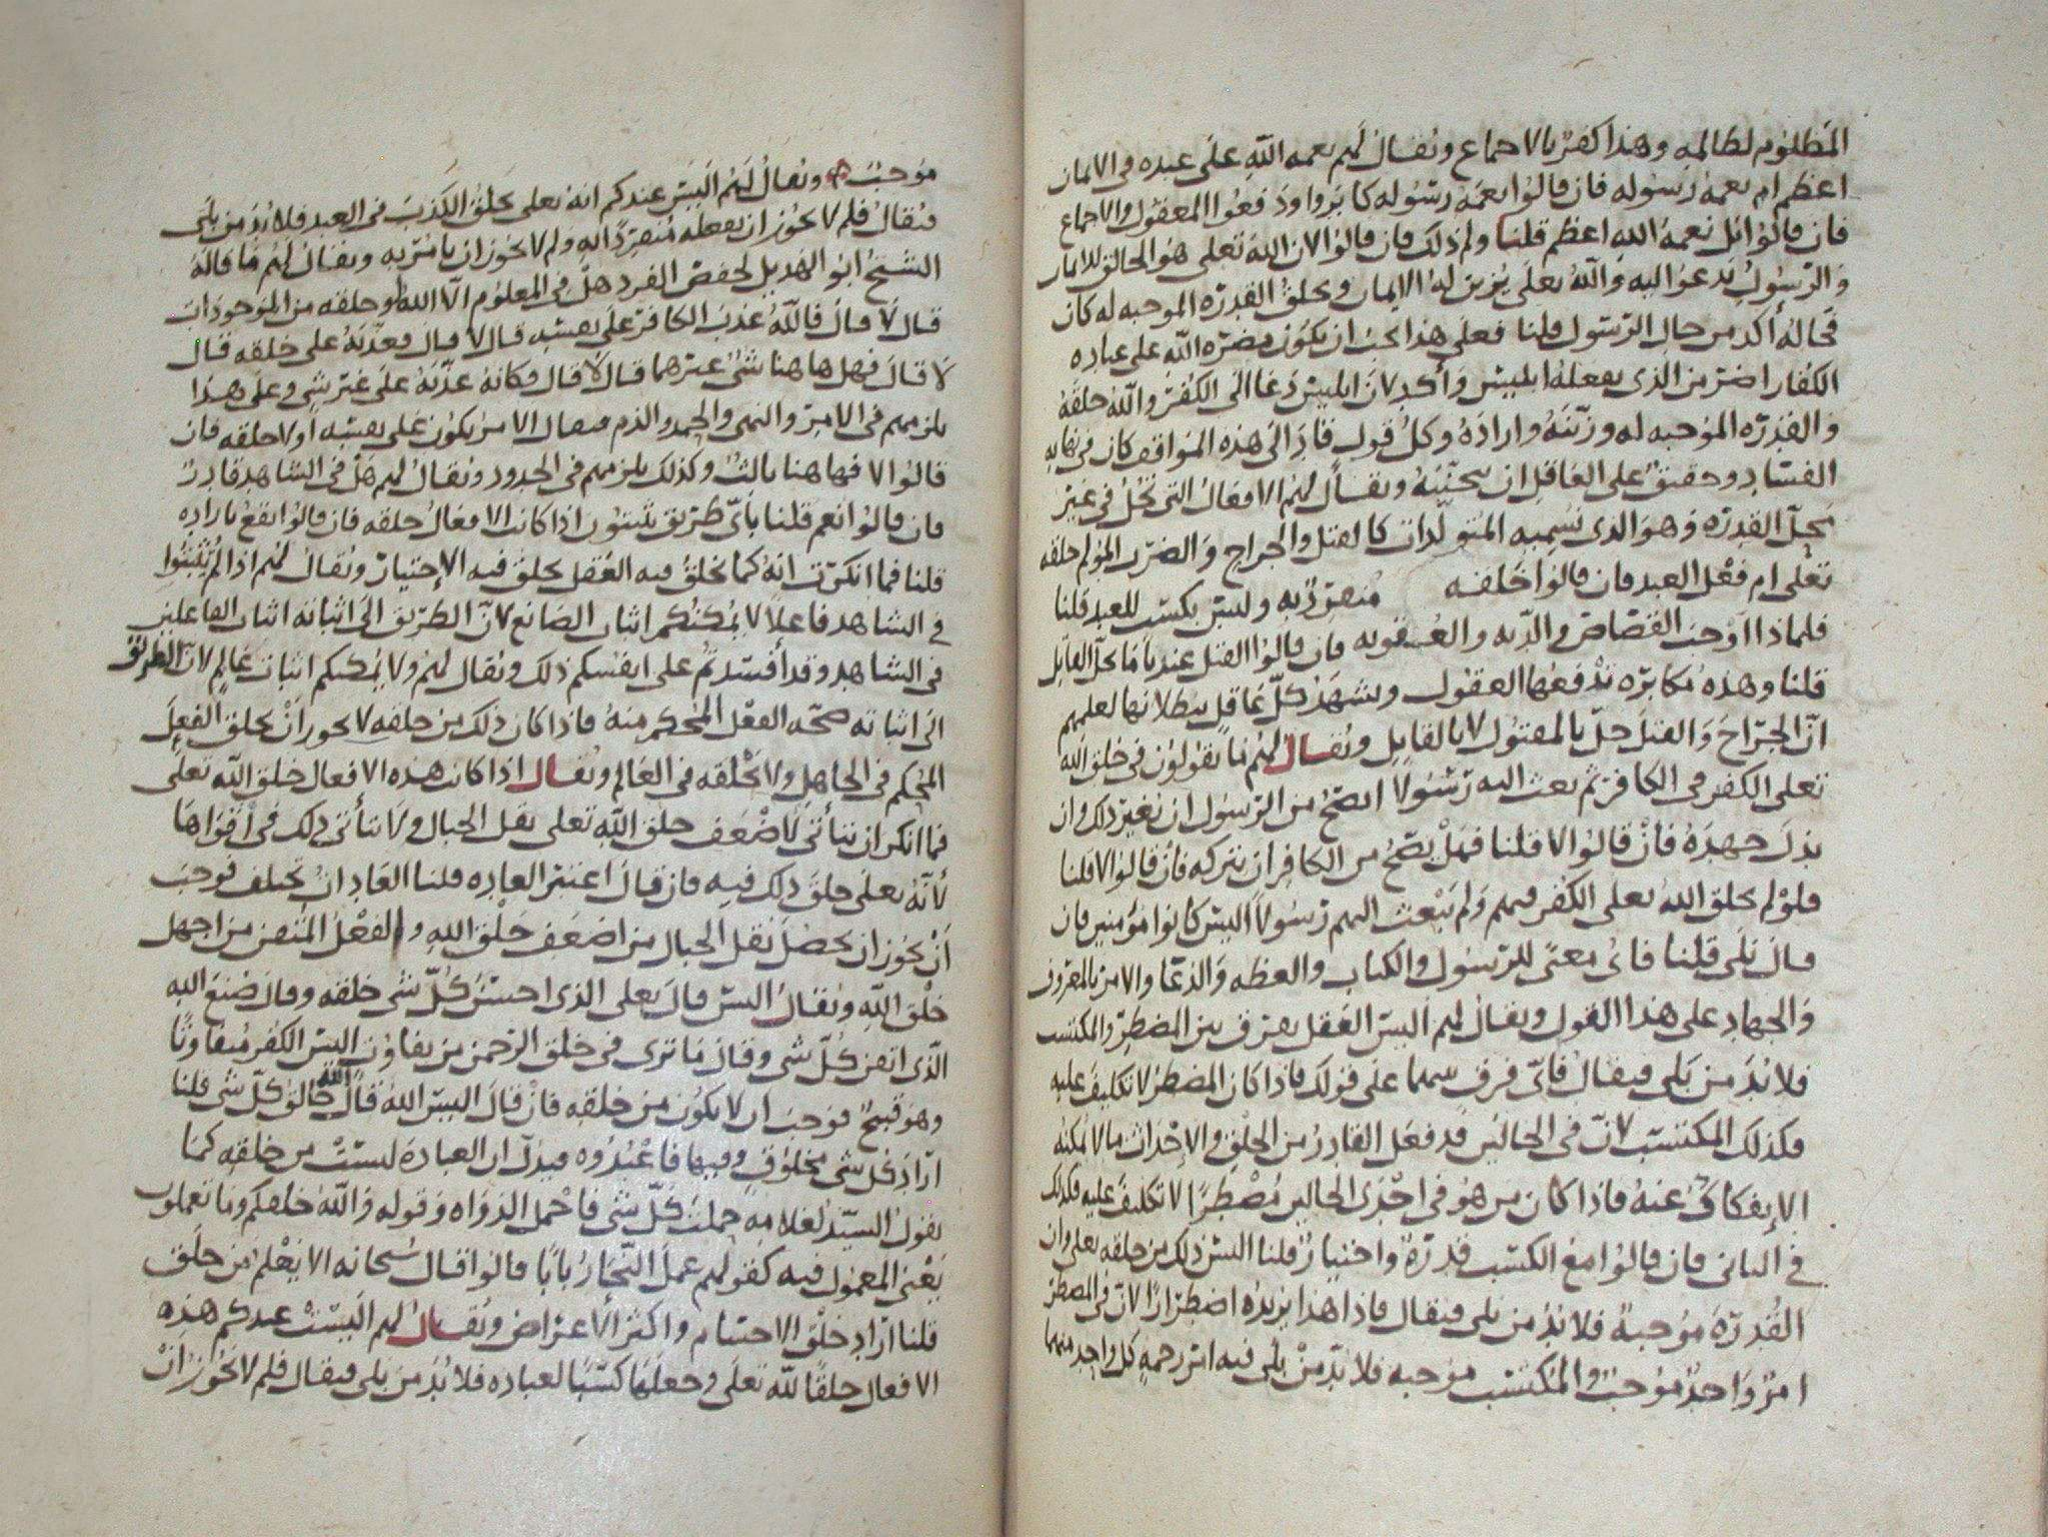 المظلوم لظالمه وهذا كفر بالاجماع ويقال لهم نعمه الله على عبده فى الايمان
اعظم ام نعمة رسوله فان قالوا نعمة رسوله كابروا ودفعوا المعقول والاجماع
فان قالوا بل نعمة الله اعظم قلنا ولم ذلك فان قالوا لان الله تعلى هو الخالق للايمان
والرسول يدعوا اليه والله تعلى يزين له الايمان ويخلق القدره الموجبه له كان
فحاله أكد من حال الرسول قلنا فعلى هذا يجب ان يكون مضره الله على عباده
الكفار اضر من الذى يفعله ابليس وأكد لان ابليس دعا الى الكفر والله خلقه
والقدره الموجبه له وزينه واراده وكل قول قاد الى هذه المواقف كان فى نهايه
الفساد وحقيق على العاقل ان يتجنبه ويقال لهم الافعال التى تحل فى غير
محل القدره وهو الذى نسميه المتولدات كالقتل والجراح والضرب المؤلم خلقه
تعلى ام فعل العبد فان قالوا خلقه منفرد به وليس بكسب للعبد قلنا
فلماذا اوجب القصاص والديه والعقوبه فان قالوا القتل عندنا ما حل القاتل
قلنا وهذه مكابره تدفعها العقول ويشهد كل عاقل ببطلانها لعلمهم
ان الجراح والقتل حل بالمقتول لا بالقاتل ويقال لهم ما تقولون فى خلق الله
تعلى الكفر فى الكافر ثم بعث اليه رسولا ايصح من الرسول ان يغير ذلك وان
بذل جهده فان قالوا لا قلنا فهل يصح من الكافر ان يتركه فان قالوا لا قلنا
فلو لم يخلق الله تعلى الكفر فيهم ولم يبعث اليهم رسولا اليس كانوا مؤمنين فان
قال بلى قلنا فاى معنى للرسول والكتاب والعظه والدعا والامر بالمعروف
والجهاد على هذا القول ويقال لهم اليس العقل يفرق بين المضطر والمكتسب
فلابد من بلى فيقال فأى فرق بينهما على قولك فاذا كان المضطر لا تكليف عليه
فكذلك المكتسب لان فى الحالين قد فعل القادر من الخلق والإحداث ما لا يمكنه
الإنفكاك عنه فاذا كان من هو فى احدى الحالين مضطرا لا تكليف عليه فكذلك
فى الثانى فان قالوا مع الكسب قدرة واختيار قلنا اليس ذلك من خلقه تعلى وان
القدرة موجبة فلابد من بلى فيقال فاذا هذا يزيده اضطرارا لان فى المضطر
امر واحد موجب والمكتسب موجبه فلابد من بلى فيه امر رحمه كل واحد منهما
موجب ويقال لهم اليس عندكم انه تعلى يخلق الكذب فى العبد فلابد من بلى
فيقال فلم لا يجوز ان يفعله منفردا به ولم لا يجوز ان يامر به ويقال لهم ما قاله
الشيخ ابو الهذيل لحفص الفرد هل فى المعلوم الا الله وخلقه من الموجودات
قال لا قال فالله عذب الكافر على نفسه قال لا قال فعذبه على خلقه قال
لا قال فهل هاهنا شئ غيرهما قال لا قال فكانه عذبه على غير شى وعلى هذا
يلزمهم فى الامر والنهى والحمد والذم فيقال الامر يكون على نفسه او لا خلقه فان
قالوا لا فهاهنا ثالث وكذلك يلزمهم فى الحدود ويقال لهم هل فى الشاهد قادر
فان قالوا نعم قلنا بأى طريق تثبتون اذا كانت الافعال خلقه فان قالوا يقع باراده
قلنا فما انكرت انه كما يخلق فيه الفعل يخلق فيه الإختيار ويقال لهم اذا لم يثبتوا
فى الشاهد فاعلا لا يمكنكم اثبات الصانع لان الطريق الى اثباته اثبات الفاعلين
فى الشاهد وقد أفسدتم على انفسكم ذلك ويقال لهم ولا يمكنكم اثبات عالم لان الطريق
الى اثباته صحه الفعل المحكم منه فاذا كان ذلك من خلقه لا يجوز ان يخلق الفعل
المحكم فى الجاهل ولا يخلقه فى العالم ويقال اذا كانت هذه الافعال خلق الله تعلى
فما انكر ان يتأتى لأضعف خلق الله تعلى نقل الجبال ولا يتأتى ذلك فى أقواها
لأنه تعلى خلق ذلك فيه فان قال اعتبر العاده قلنا العادات تختلف فوجب
أن يجوز ان يحصل نقل الجبال من اضعف خلق الله والفعل المتقن من اجهل
خلق الله ويقال اليس قال تعلى الذى احسن كل شى خلقه وقال صنع الله
الذى اتقن كل شى وقال ما ترى فى خلق الرحمن من تفاوت اليس الكفر متفاوتا
وهو قبيح فوجب ان لا يكون من خلقه فان قال اليس الله قال الله خالق كل شى قلنا
اراد كل شى مخلوق وفيها فاعبدوه فيدل ان العبادة ليست من خلقه كما
يقول السيد لغلامه حملت كل شى فاحمل الدواه وقوله والله خلقكم وما تعملون
يعنى المعمول فيه كقولهم عمل النجار بابا قالوا قال سبحانه الا يعلم من خلق
قلنا اراد خلق الاجسام واكثر الأعراض ويقال لهم أليست عندكم هذه
الافعال خلقا لله تعلى وجعلها كسبا لعباده فلابد من بلى فيقال فلم لا يجوز ان